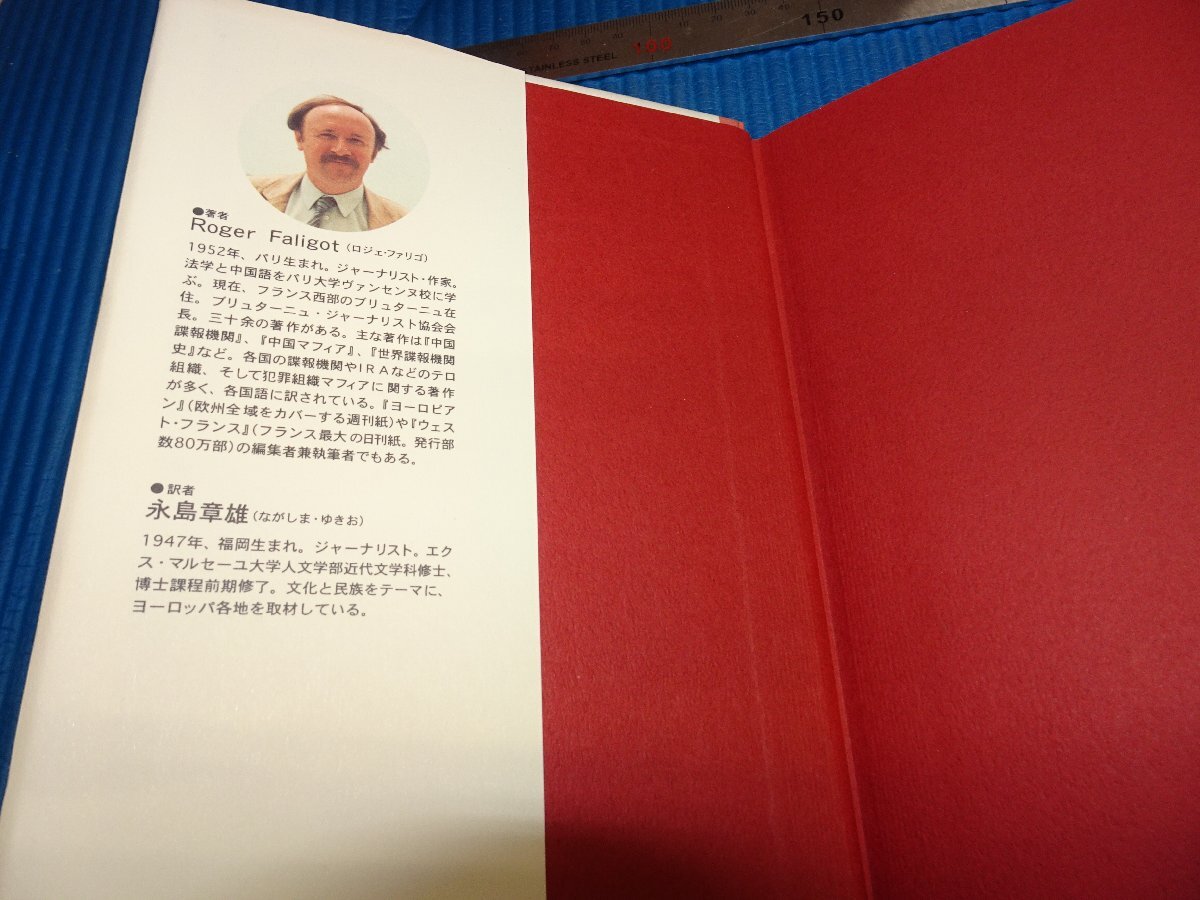 STAINLESS STEEL
100
150
●著者
Roger Faligot（ロジェ・ファリゴ）
1952年、パリ生まれ。ジャーナリスト・作家。
法学と中国語をパリ大学ヴァンセンヌ校に学
ぶ。現在、フランス西部のブリュターニュ在
住。ブリュターニュ・ジャーナリスト協会会
長。三十余の著作がある。主な著作は『中国
諜報機関』、『中国マフィア』、『世界諜報機関
史』など。各国の諜報機関やIRAなどのテロ
組織、そして犯罪組織マフィアに関する著作
が多く、各国語に訳されている。『ヨーロピア
ン』（欧州全域をカバーする週刊紙）や『ウェス
ト・フランス』（フランス最大の日刊紙。発行部
数80万部）の編集者兼執筆者でもある。
●訳者
永島章雄（ながしま・ゆきお）
1947年、福岡生まれ。ジャーナリスト。エク
ス・マルセーユ大学人文学部近代文学科修士、
博士課程前期修了。文化と民族をテーマに、
ヨーロッパ各地を取材している。